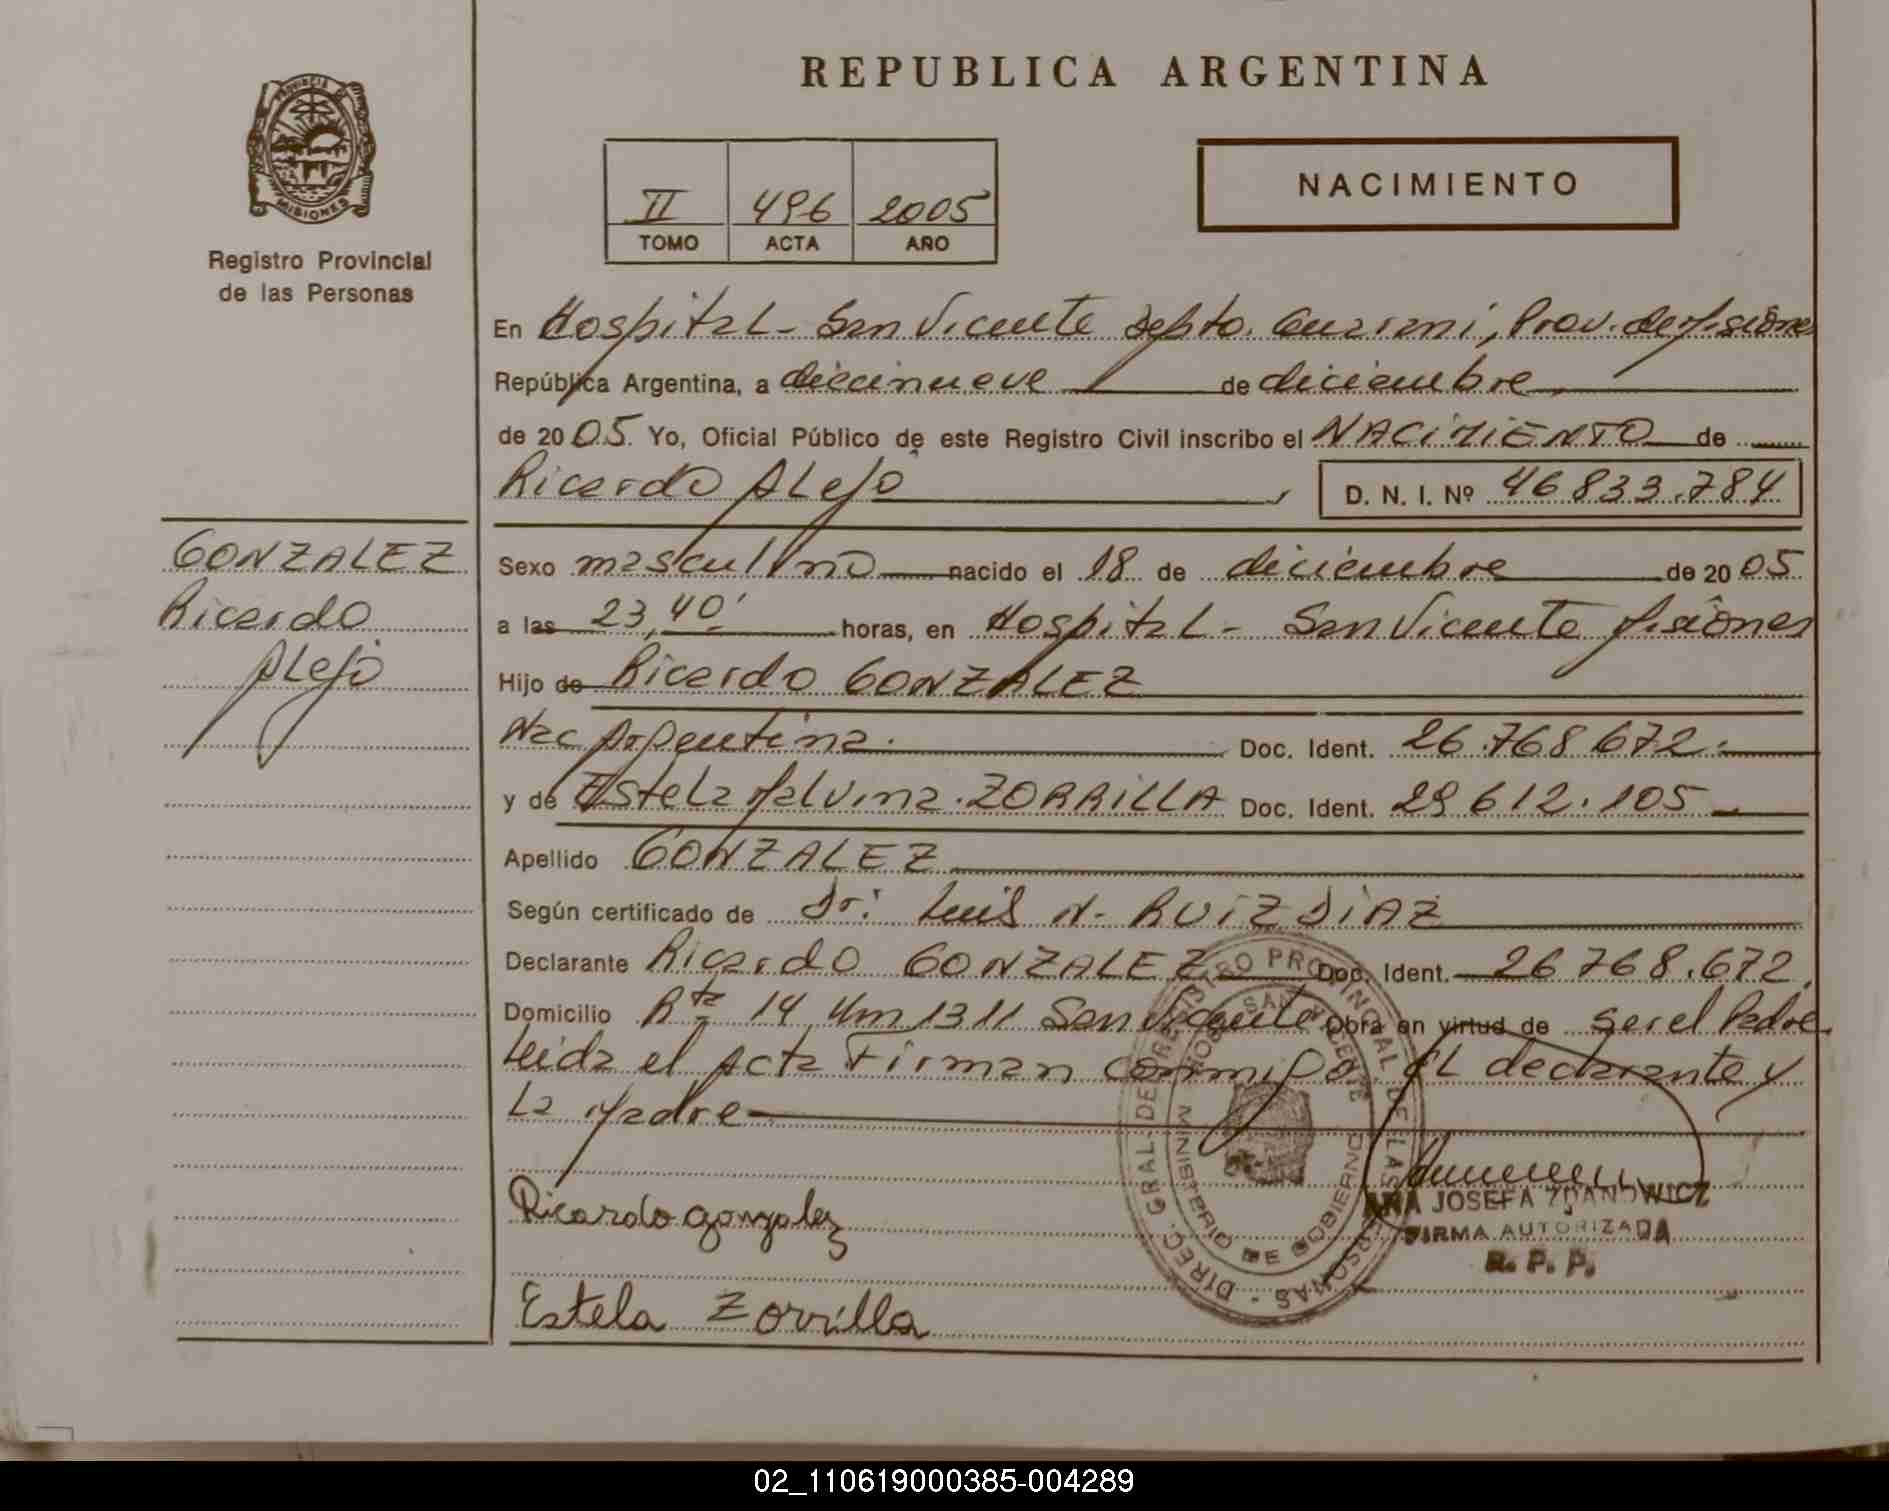 REPUBLICA ARGENTINA
PROVINCIA DE MISIONES
Registro Provincial
de las Personas
II 496 2005
TOMO ACTA AÑO
NACIMIENTO
En Hospital - San Vicente Depto. Guaraní, Prov. de Misiones
República Argentina, a diecinueve de diciembre
de 2005. Yo, Oficial Público de este Registro Civil inscribo el NACIMIENTO de
Ricardo Alejo, D. N. I. Nº 46833.784
GONZALEZ
Ricardo
Alejo
Sexo masculino nacido el 18 de diciembre de 2005
a las 23,40' horas, en Hospital - San Vicente Misiones
Hijo de Ricardo GONZALEZ
Nac Argentina. Doc. Ident. 26.768.672.
y de Estela Malvina. ZORRILLA Doc. Ident. 29.612.105
Apellido GONZALEZ
Según certificado de Dr: Luis N. RUIZ DIAZ
Declarante Ricardo GONZALEZ Doc. Ident. 26.768.672.
Domicilio Rta 14 Km 1311 San Vicente Obra en virtud de ser el Padre.
Leida el Acta Firman conmigo. El declarante y
La Madre
Ricardo gonzalez
Estela Zorrilla
DIREC. GRAL. DEL REGISTRO PROVINCIAL DE LAS PERSONAS
MINISTERIO DE GOBIERNO
SAN VICENTE
ANA JOSEFA ZDANOWICZ
FIRMA AUTORIZADA
R. P. P.
02_110619000385-004289